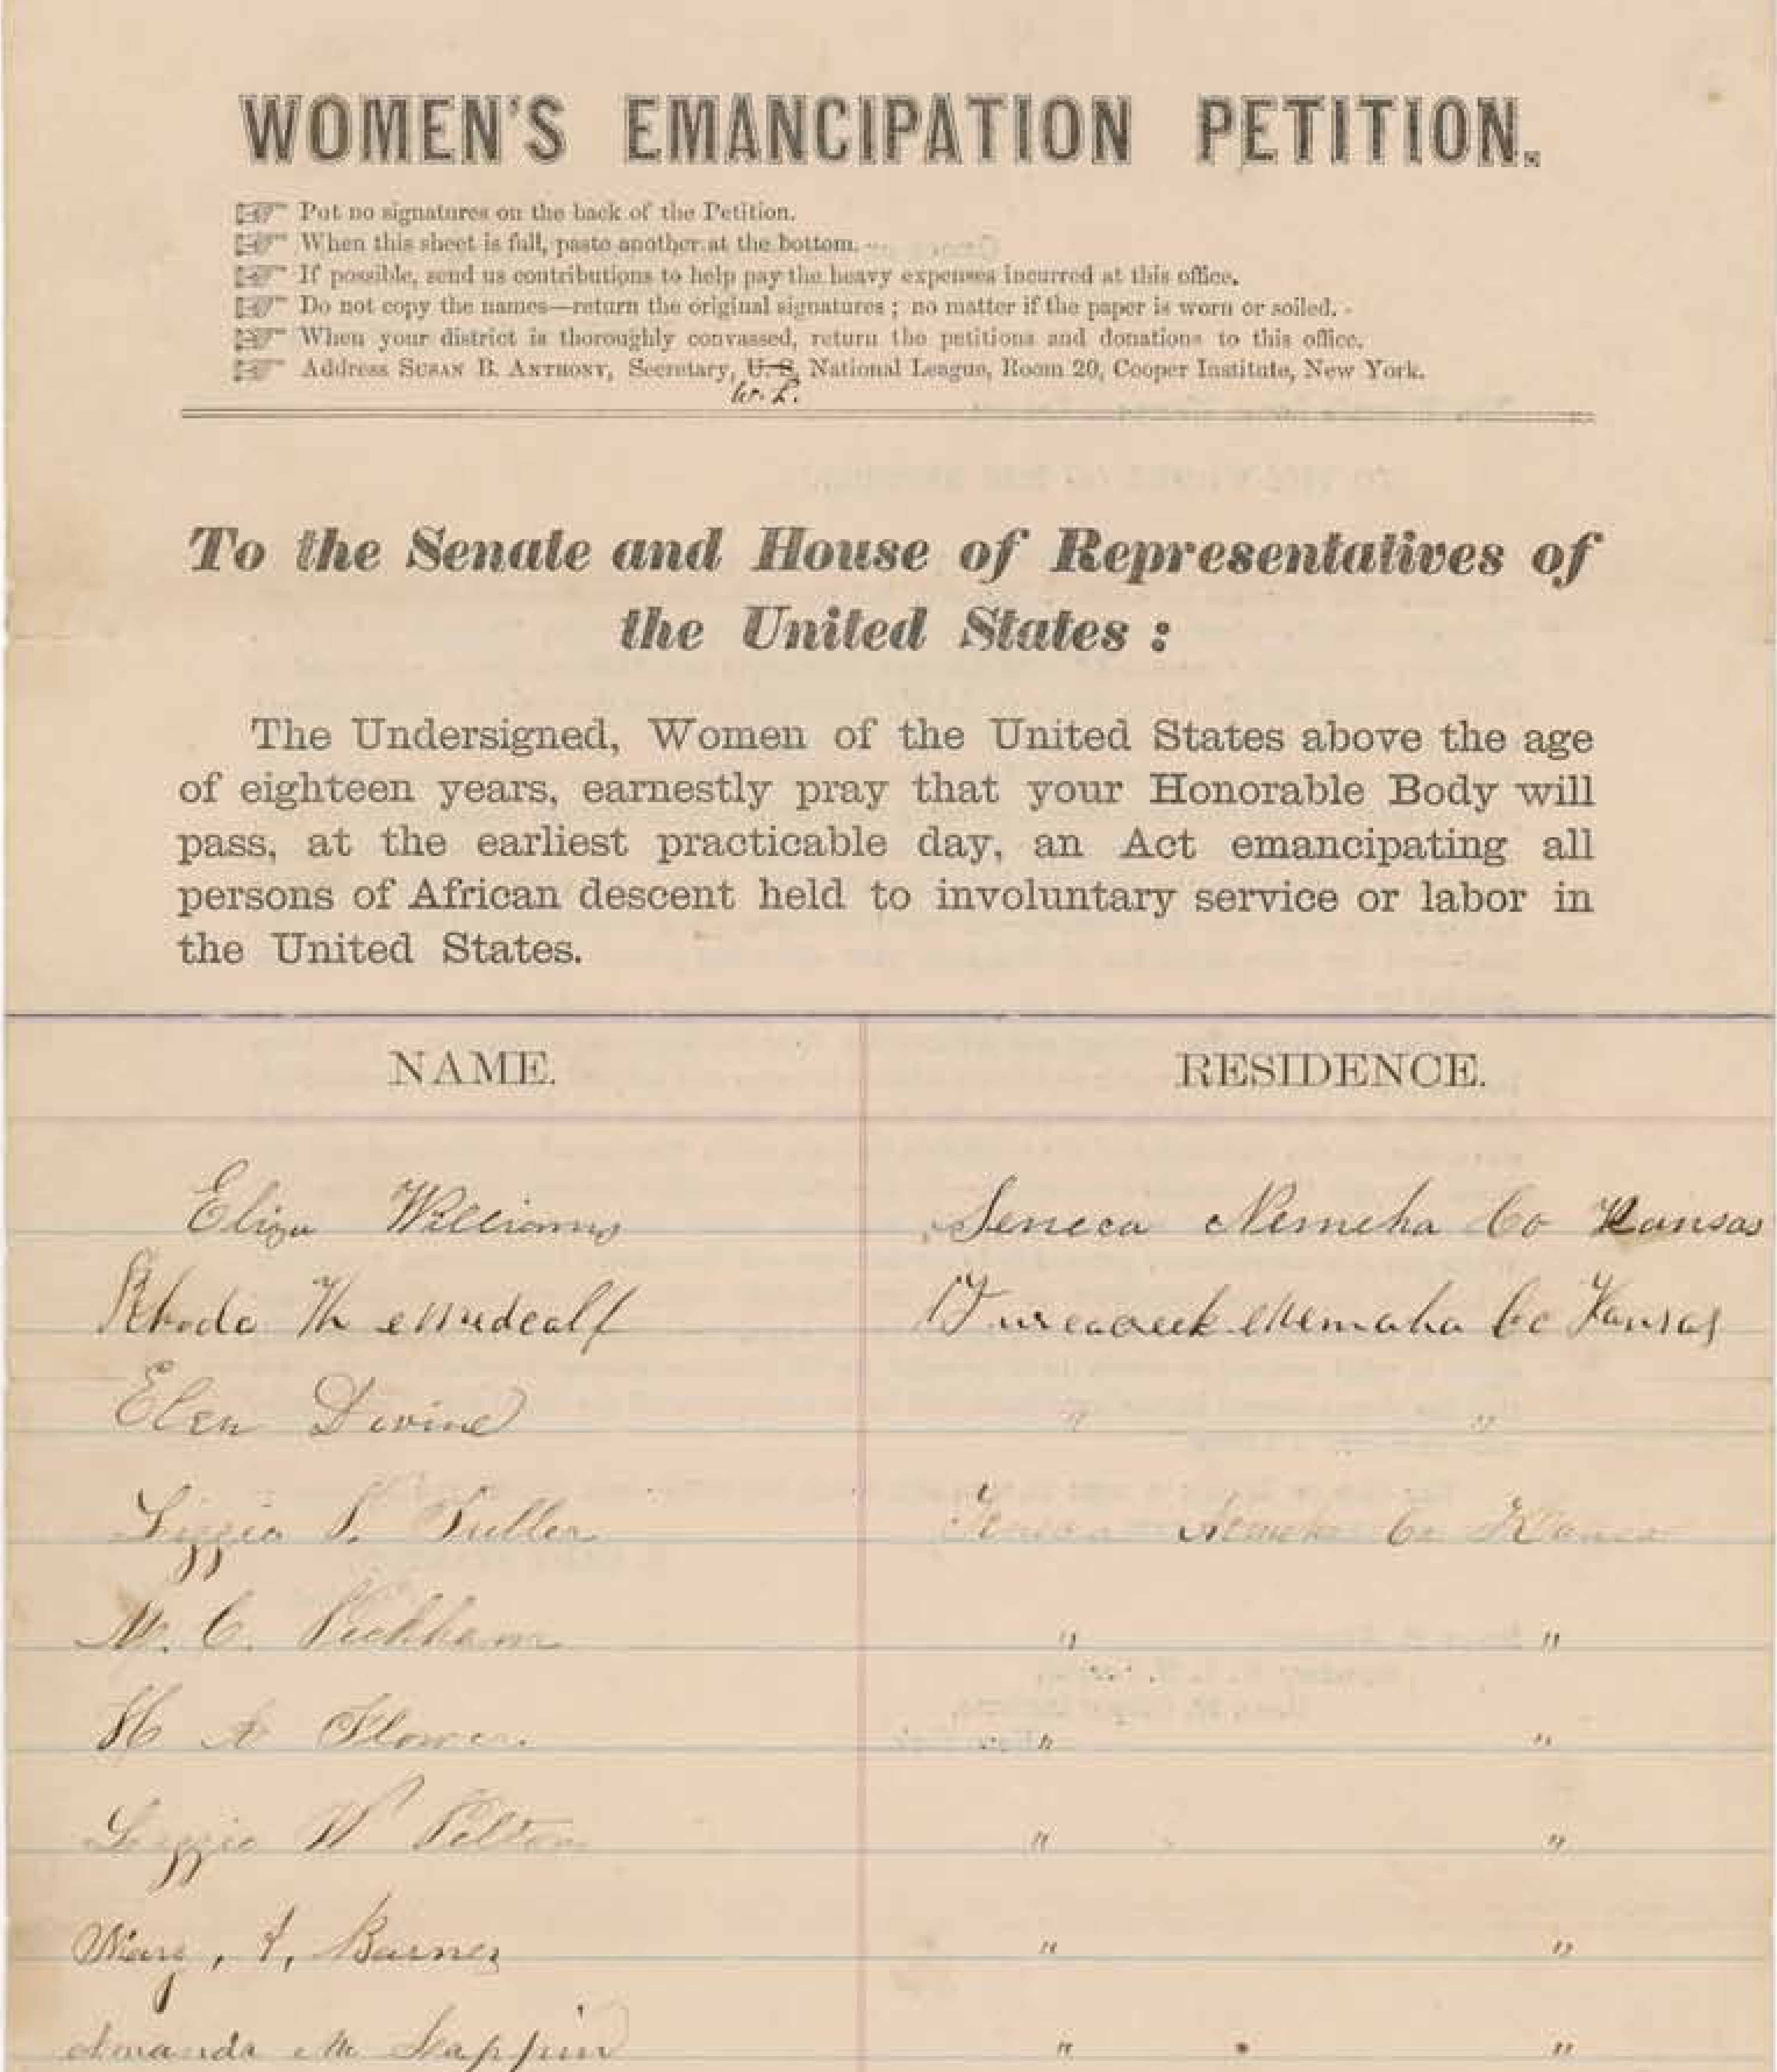 WOMEN'S EMANCIPATION PETITION.
☞ Put no signatures on the back of the Petition.
☞ When this sheet is full, paste another at the bottom.
☞ If possible, send us contributions to help pay the heavy expenses incurred at this office.
☞ Do not copy the names—return the original signatures; no matter if the paper is worn or soiled.
☞ When your district is thoroughly convassed, return the petitions and donations to this office.
☞ Address SUSAN B. ANTHONY, Secretary, U. S. National League, Room 20, Cooper Institute, New York.
W. L.
To the Senate and House of Representatives of
the United States :
The Undersigned, Women of the United States above the age
of eighteen years, earnestly pray that your Honorable Body will
pass, at the earliest practicable day, an Act emancipating all
persons of African descent held to involuntary service or labor in
the United States.
NAME. RESIDENCE.
Eliza Williams Seneca Nemeha Co Kansas
Rhoda M Nemaha Co Kansas
Elen Divine " "
Lizzie S. Fuller Nemeha Co
M. C. Peckham " "
H A Flower " "
Lizzie W Pelton " "
Mary, A, Barnes " "
Amanda M Scappin " "